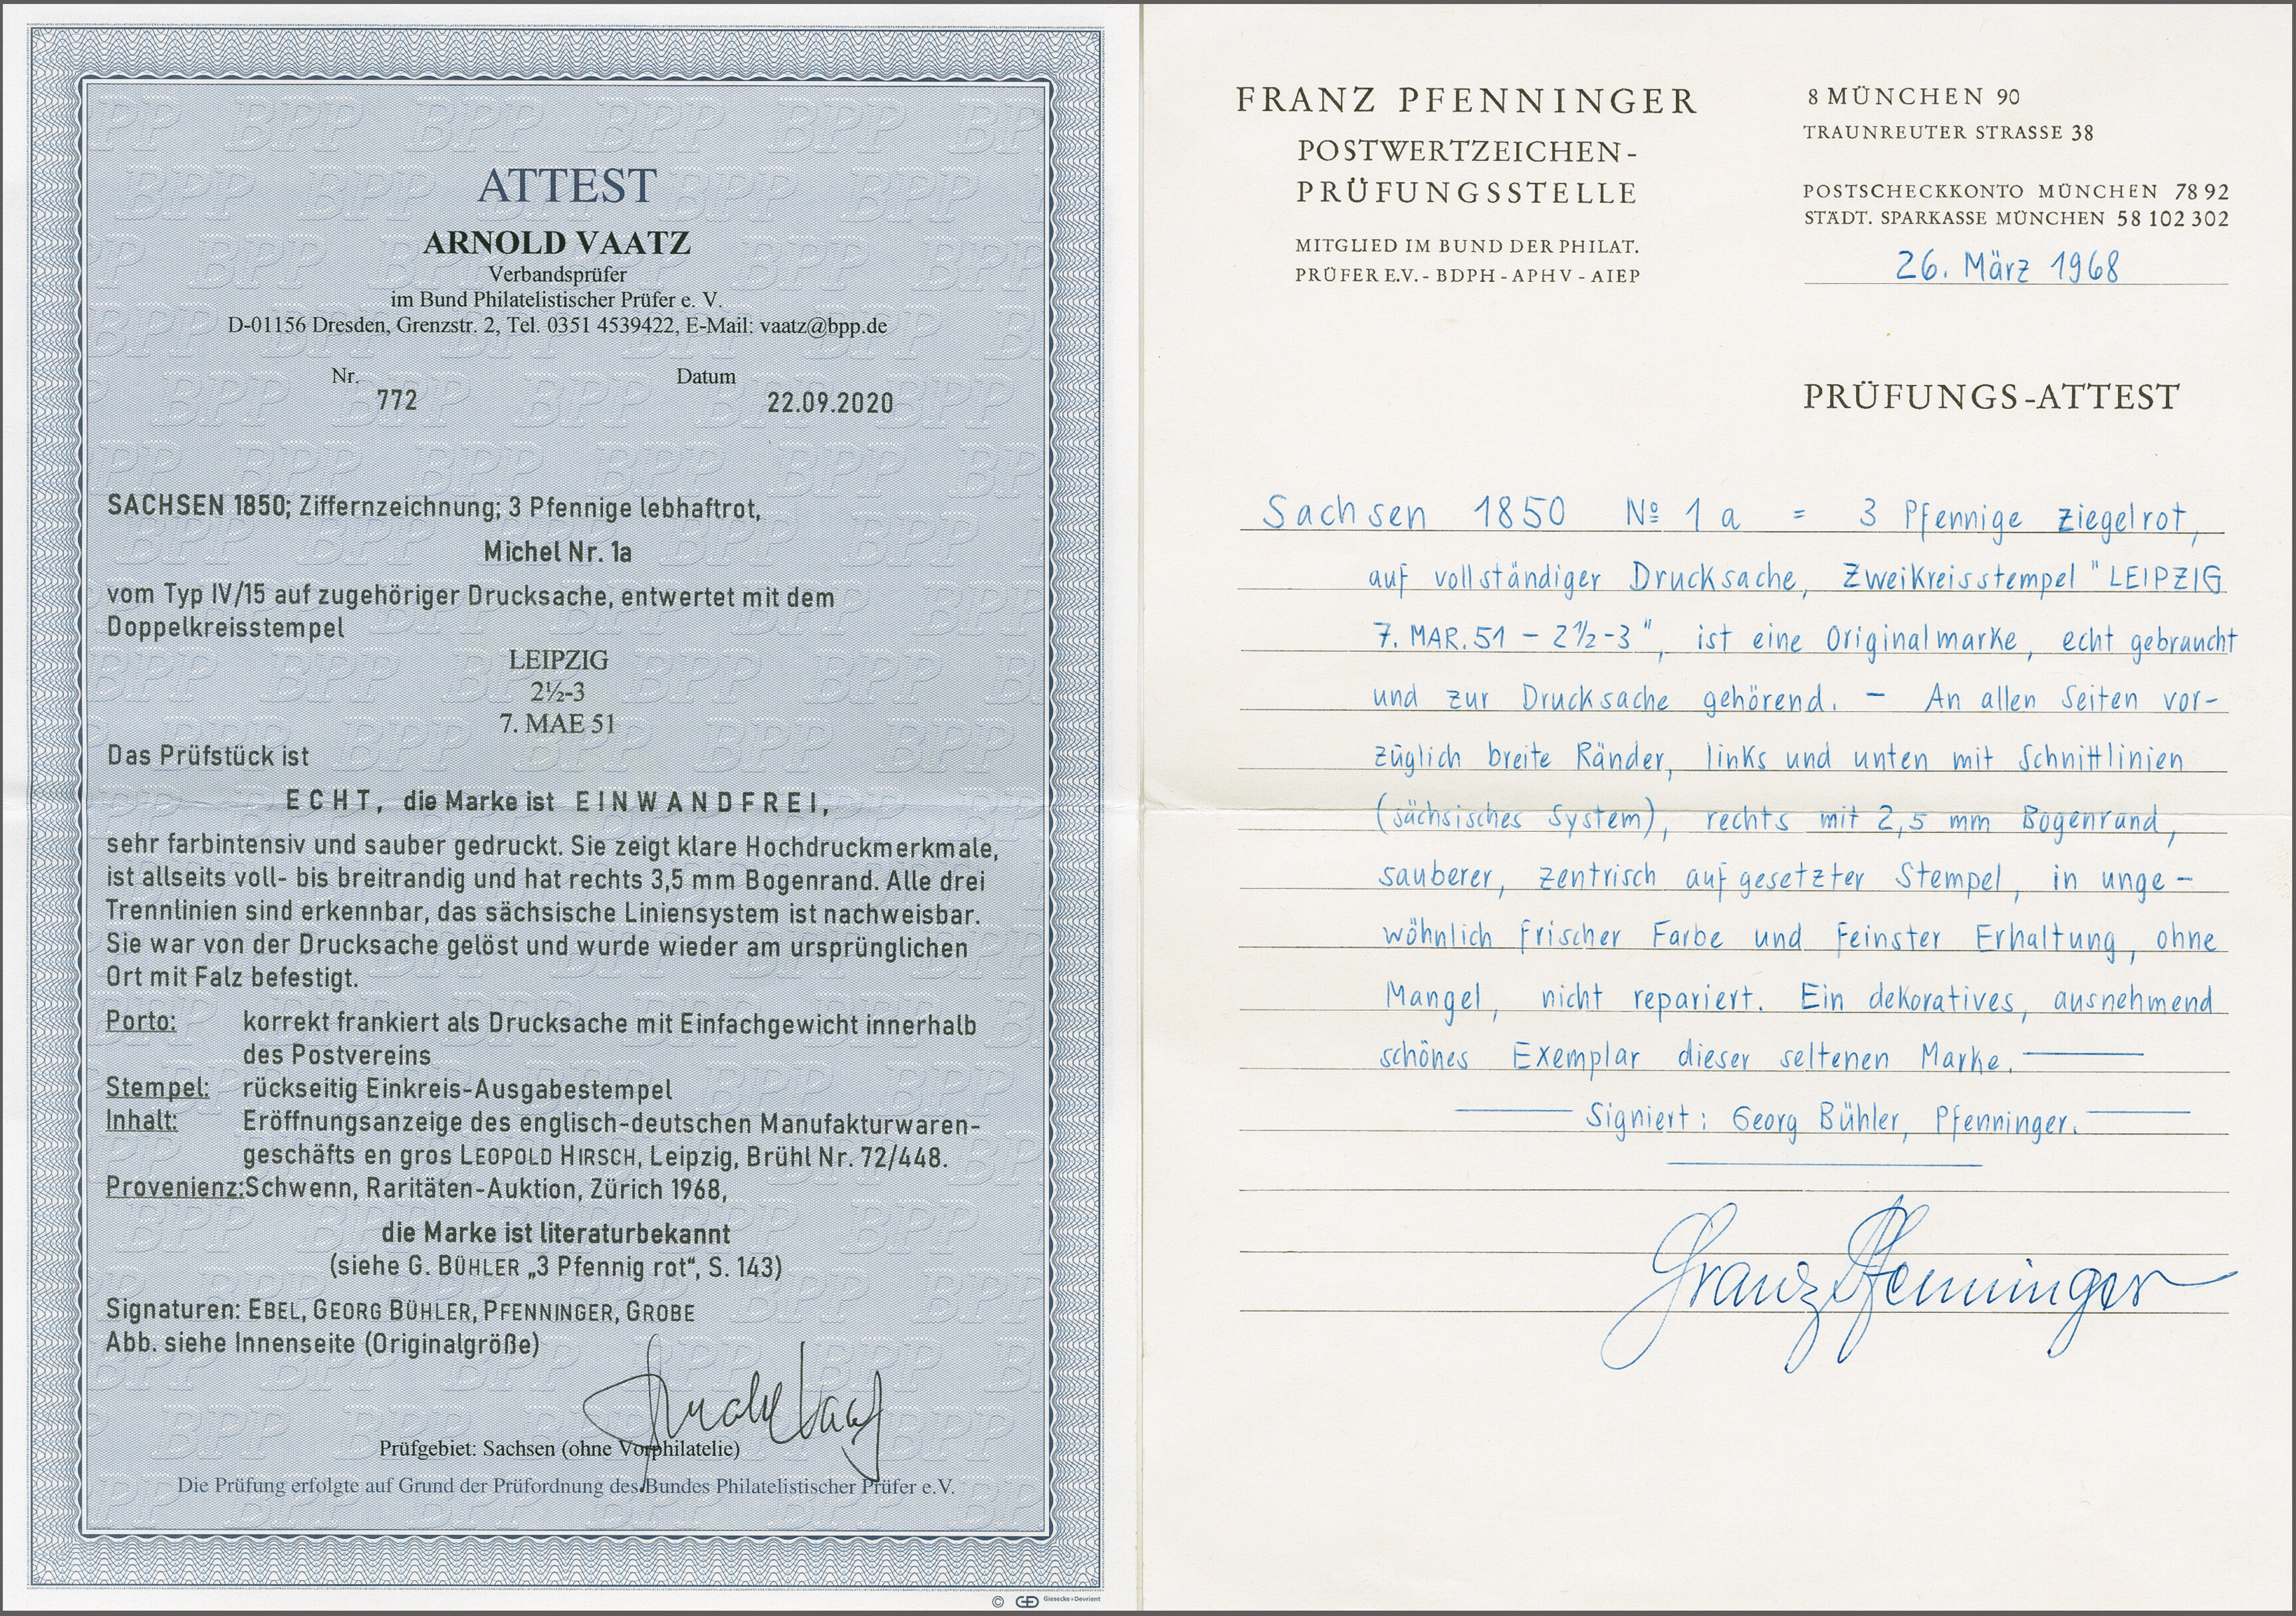 ATTEST
ARNOLD VAATZ
Verbandsprüfer
im Bund Philatelistischer Prüfer e. V.
D-01156 Dresden, Grenzstr. 2, Tel. 0351 4539422, E-Mail: vaatz@bpp.de
Nr. Datum
772 22.09.2020
SACHSEN 1850; Ziffernzeichnung; 3 Pfennige lebhaftrot,
Michel Nr. 1a
vom Typ IV/15 auf zugehöriger Drucksache, entwertet mit dem
Doppelkreisstempel
LEIPZIG
2½-3
7. MAE 51
Das Prüfstück ist
ECHT, die Marke ist EINWANDFREI,
sehr farbintensiv und sauber gedruckt. Sie zeigt klare Hochdruckmerkmale,
ist allseits voll- bis breitrandig und hat rechts 3,5 mm Bogenrand. Alle drei
Trennlinien sind erkennbar, das sächsische Liniensystem ist nachweisbar.
Sie war von der Drucksache gelöst und wurde wieder am ursprünglichen
Ort mit Falz befestigt.
Porto: korrekt frankiert als Drucksache mit Einfachgewicht innerhalb
des Postvereins
Stempel: rückseitig Einkreis-Ausgabestempel
Inhalt: Eröffnungsanzeige des englisch-deutschen Manufakturwaren-
geschäfts en gros LEOPOLD HIRSCH, Leipzig, Brühl Nr. 72/448.
Provenienz:Schwenn, Raritäten-Auktion, Zürich 1968,
die Marke ist literaturbekannt
(siehe G. BÜHLER „3 Pfennig rot“, S. 143)
Signaturen: EBEL, GEORG BÜHLER, PFENNINGER, GROBE
Abb. siehe Innenseite (Originalgröße)
Arnold Vaatz
Prüfgebiet: Sachsen (ohne Vorphilatelie)
Die Prüfung erfolgte auf Grund der Prüfordnung des Bundes Philatelistischer Prüfer e.V.
© GD Giesecke+Devrient
FRANZ PFENNINGER
POSTWERTZEICHEN-
PRÜFUNGSSTELLE
MITGLIED IM BUND DER PHILAT.
PRÜFER E.V. - BDPH - APHV - AIEP
8 MÜNCHEN 90
TRAUNREUTER STRASSE 38
POSTSCHECKKONTO MÜNCHEN 78 92
STÄDT. SPARKASSE MÜNCHEN 58 102 302
26. März 1968
PRÜFUNGS-ATTEST
Sachsen 1850 Nº 1 a = 3 Pfennige ziegelrot,
auf vollständiger Drucksache, Zweikreisstempel "LEIPZIG
7. MAR. 51 - 2½-3", ist eine Originalmarke, echt gebraucht
und zur Drucksache gehörend. - An allen Seiten vor-
züglich breite Ränder, links und unten mit Schnittlinien
(sächsisches System), rechts mit 2,5 mm Bogenrand,
sauberer, zentrisch aufgesetzter Stempel, in unge-
wöhnlich frischer Farbe und feinster Erhaltung, ohne
Mangel, nicht repariert. Ein dekoratives, ausnehmend
schönes Exemplar dieser seltenen Marke.
Signiert: Georg Bühler, Pfenninger.
Franz Pfenninger